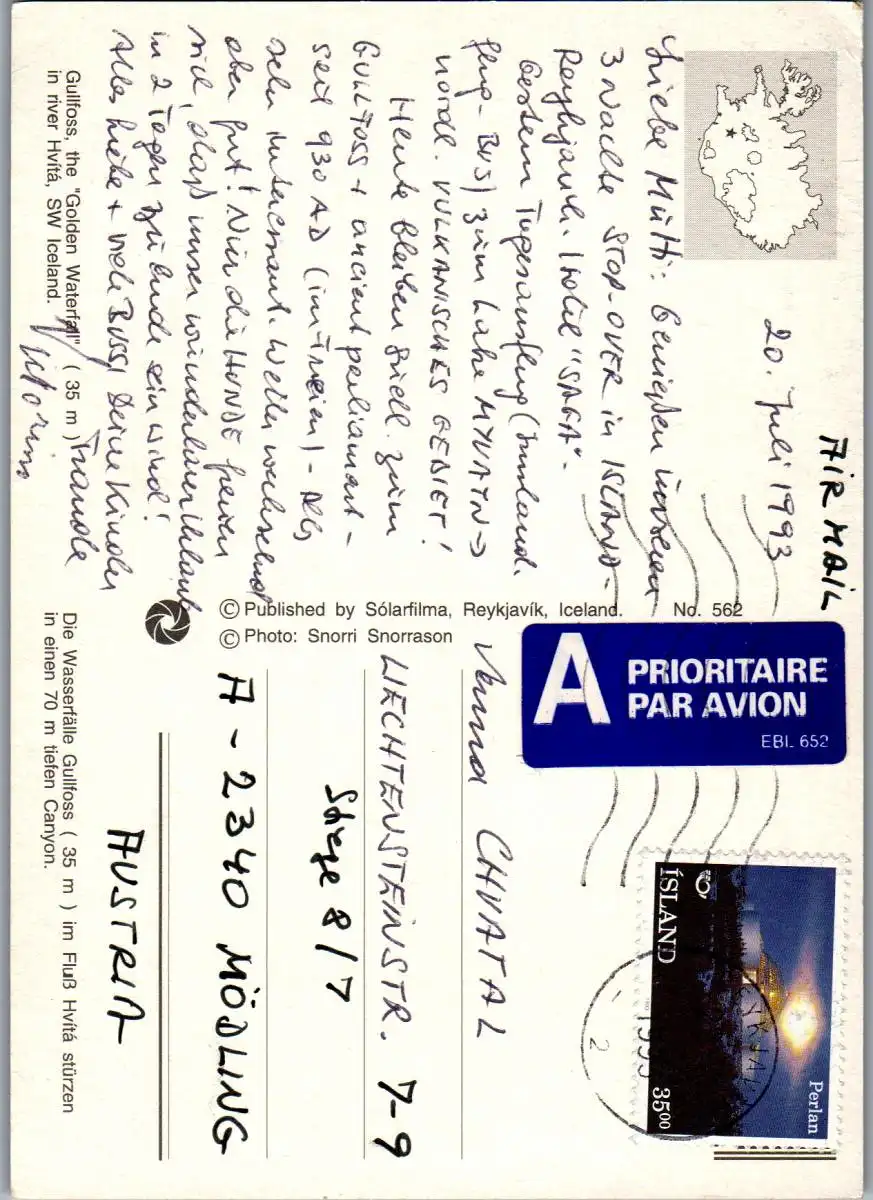 AIR MAIL
20. Juli 1993
Liebe Mutti: Genießen unseren
3 Nächte STOP-OVER in ISLAND -
Reykjavik Hotel "SAGA".
Gestern Tagesausflug (Inland.
flug - BUS) zum Lake MYVATN →
nördl. VULKANISCHES GEBIET!
Heute bleiben südl. zum
GULLFOSS + ancient parliament -
seit 930 AD (im Freien) - Alles
sehr interessant. Wetter wechselnd
aber gut! Nur die HUNDE freuen
sich, daß unser wunderbarer Urlaub
in 2 Tagen zu Ende sein wird!
Alles Liebe + viele Bussi Deine Kinder
Gullfoss, the "Golden Waterfall" ( 35 m )
in river Hvítá, SW Iceland.
Die Wasserfälle Gullfoss ( 35 m ) im Fluß Hvítá stürzen
in einen 70 m tiefen Canyon.
© Published by Sólarfilma, Reykjavík, Iceland. No. 562
© Photo: Snorri Snorrason
A PRIORITAIRE
PAR AVION
EBL 652
ÍSLAND
Perlan
3500
1993
2
CHVATAL
LIECHTENSTEINSTR. 7-9
Stiege 8/7
A - 2340 MÖDLING
AUSTRIA